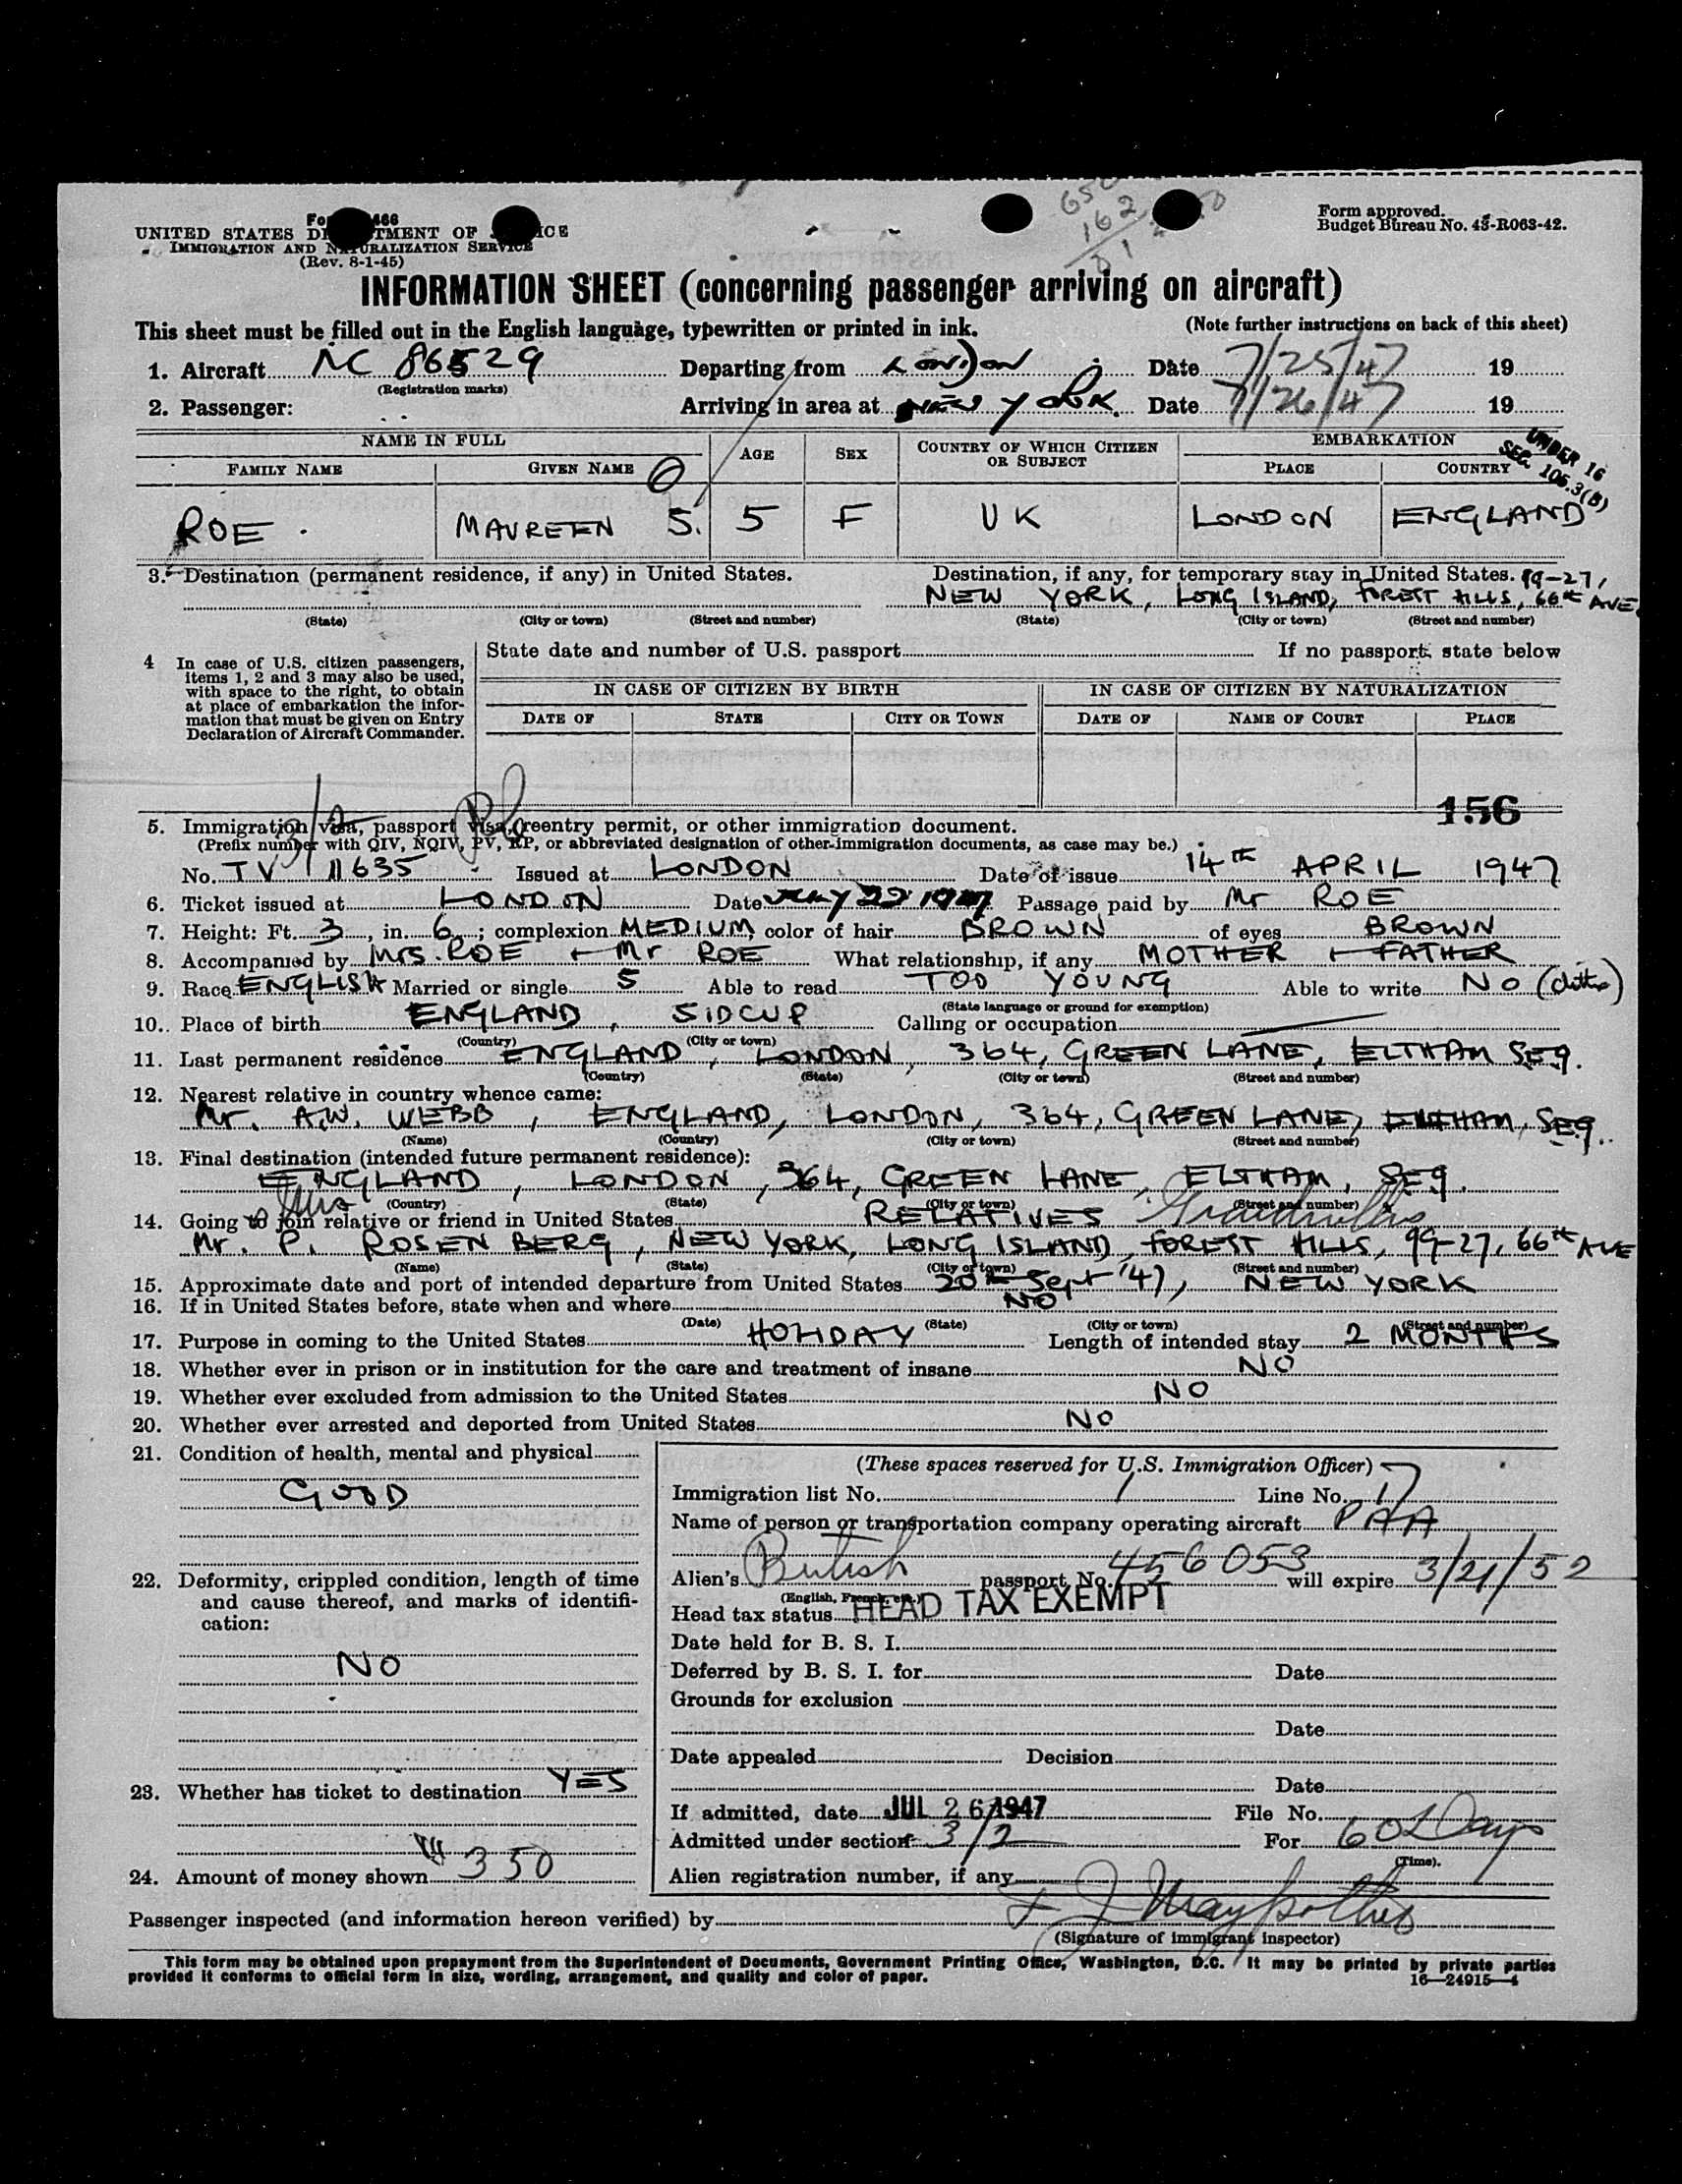 UNITED STATES DEPARTMENT OF JUSTICE
IMMIGRATION AND NATURALIZATION SERVICE
(Rev. 8-1-45)
Form approved.
Budget Bureau No. 43-R063-42.
INFORMATION SHEET (concerning passenger arriving on aircraft)
This sheet must be filled out in the English language, typewritten or printed in ink. (Note further instructions on back of this sheet)
1. Aircraft NC 86529 Departing from London Date 7/25/47 19
(Registration marks)
2. Passenger: Arriving in area at NEW YORK. Date 7/26/47 19
NAME IN FULL AGE SEX COUNTRY OF WHICH CITIZEN OR SUBJECT EMBARKATION
FAMILY NAME GIVEN NAME PLACE COUNTRY
UNDER 16
SEC. 105.3(B)
ROE. MAUREEN S. 5 F UK LONDON ENGLAND
3. Destination (permanent residence, if any) in United States. Destination, if any, for temporary stay in United States. 99-27,
NEW YORK, LONG ISLAND, FOREST HILLS, 66th AVE
(State) (City or town) (Street and number) (State) (City or town) (Street and number)
4 In case of U.S. citizen passengers, items 1, 2 and 3 may also be used, with space to the right, to obtain at place of embarkation the information that must be given on Entry Declaration of Aircraft Commander.
State date and number of U.S. passport If no passport, state below
IN CASE OF CITIZEN BY BIRTH IN CASE OF CITIZEN BY NATURALIZATION
DATE OF STATE CITY OR TOWN DATE OF NAME OF COURT PLACE
156
5. Immigration visa, passport visa, reentry permit, or other immigration document.
(Prefix number with QIV, NQIV, PV, RP, or abbreviated designation of other immigration documents, as case may be.)
No. TV 11635 Issued at LONDON Date of issue 14th APRIL 1947
6. Ticket issued at LONDON Date July 22 1947 Passage paid by Mr ROE
7. Height: Ft. 3, in. 6; complexion MEDIUM, color of hair BROWN of eyes BROWN
8. Accompanied by Mrs. ROE + Mr ROE What relationship, if any MOTHER + FATHER
9. Race ENGLISH Married or single S Able to read TOO YOUNG Able to write NO (ditto)
(State language or ground for exemption)
10. Place of birth ENGLAND, SIDCUP Calling or occupation
(Country) (City or town)
11. Last permanent residence ENGLAND, LONDON, 364, GREEN LANE, ELTHAM SE9.
(Country) (State) (City or town) (Street and number)
12. Nearest relative in country whence came:
Mr. A.W. WEBB, ENGLAND, LONDON, 364, GREEN LANE, ELTHAM, SE9.
(Name) (Country) (City or town) (Street and number)
13. Final destination (intended future permanent residence):
ENGLAND, LONDON, 364, GREEN LANE, ELTHAM, SE9.
(Country) (State) (City or town) (Street and number)
14. Going to join relative or friend in United States RELATIVES Grandmother
Mr. P. ROSENBERG, NEW YORK, LONG ISLAND, FOREST HILLS, 99-27, 66th AVE
(Name) (State) (City or town) (Street and number)
15. Approximate date and port of intended departure from United States 20th Sept '47, NEW YORK
16. If in United States before, state when and where NO
(Date) (State) (City or town) (Street and number)
17. Purpose in coming to the United States HOLIDAY Length of intended stay 2 MONTHS
18. Whether ever in prison or in institution for the care and treatment of insane NO
19. Whether ever excluded from admission to the United States NO
20. Whether ever arrested and deported from United States NO
21. Condition of health, mental and physical
GOOD
22. Deformity, crippled condition, length of time and cause thereof, and marks of identification:
NO
23. Whether has ticket to destination YES
24. Amount of money shown 350
(These spaces reserved for U.S. Immigration Officer)
Immigration list No. 1 Line No. 17
Name of person or transportation company operating aircraft PAA
Alien's British passport No. 456053 will expire 3/21/52
(English, French, etc.)
Head tax status HEAD TAX EXEMPT
Date held for B. S. I.
Deferred by B. S. I. for Date
Grounds for exclusion
Date
Date appealed Decision
Date
If admitted, date JUL 26 1947 File No.
Admitted under section 3/2 For 60 Days
(Time).
Alien registration number, if any
Passenger inspected (and information hereon verified) by
(Signature of immigrant inspector)
This form may be obtained upon prepayment from the Superintendent of Documents, Government Printing Office, Washington, D.C. It may be printed by private parties
provided it conforms to official form in size, wording, arrangement, and quality and color of paper. 16—24915-4